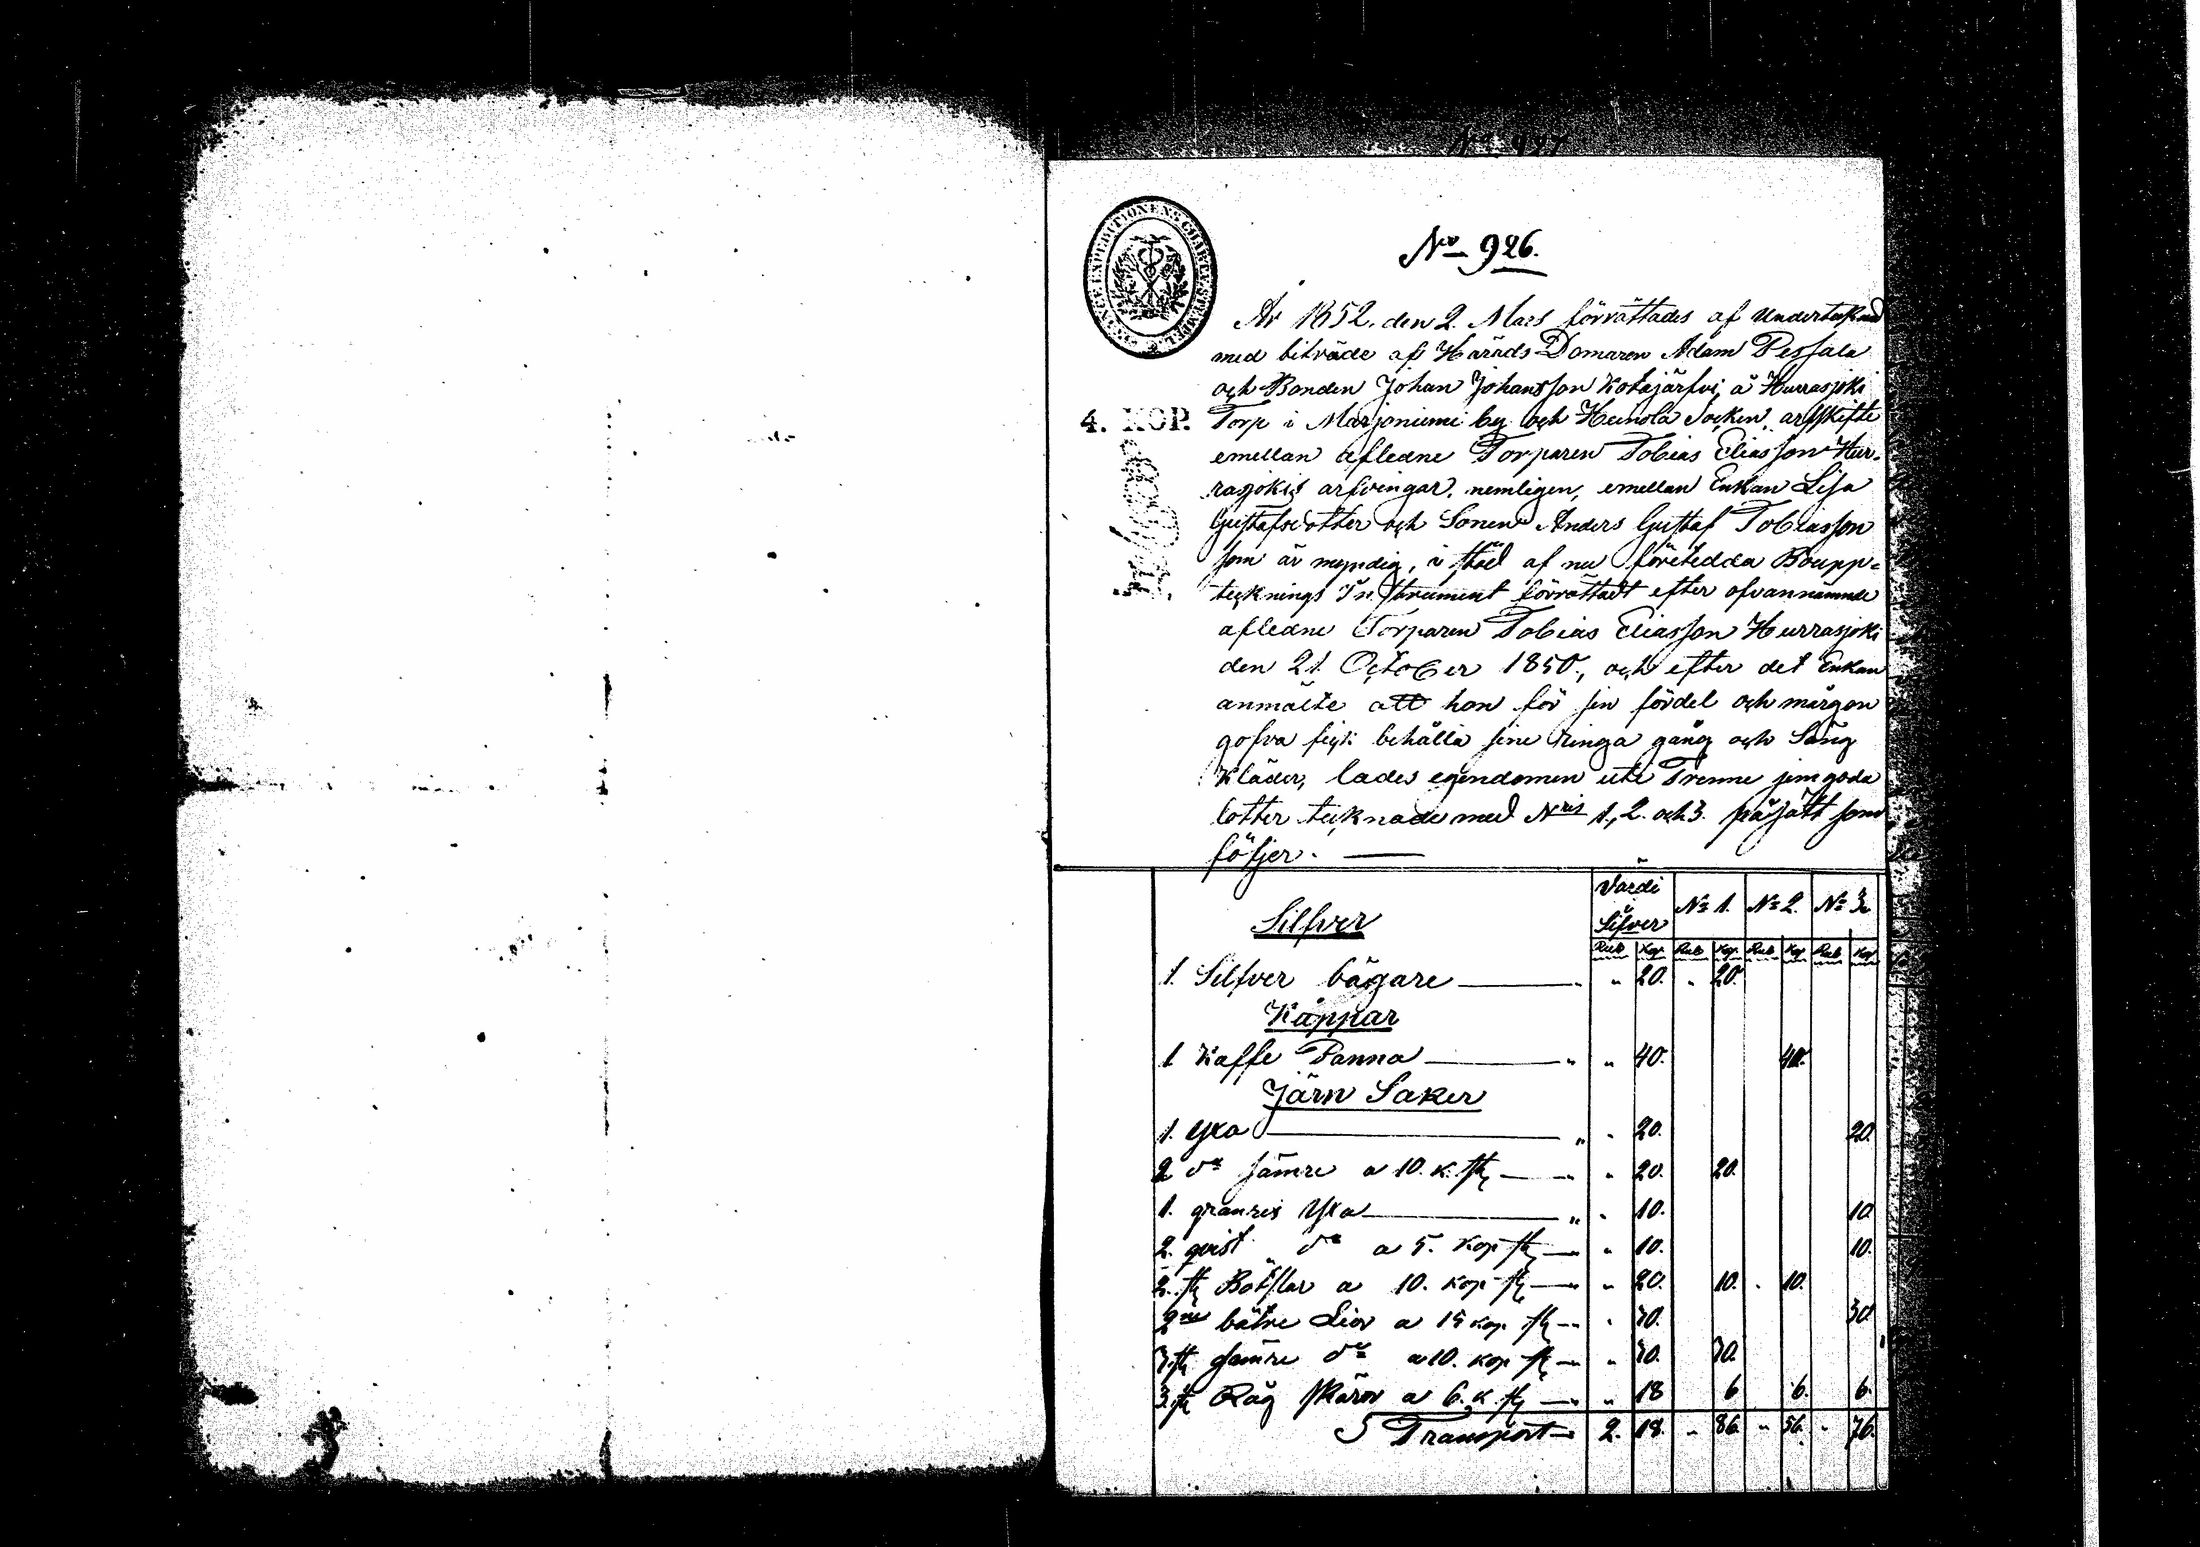 No 926.
År 1852. den 2. Mars förrättades af Undertecknad
med biträde af Härads Domaren Adam Pessala
och Bonden Johan Johansson Kotajärfvi, å Hurrasjoki
4. KOP. Torp i Marjoniemi by och Heinola Socken, arfskifte
emellan afledne Torparen Tobias Eliasson Hur-
rasjokis arfvingar, nemligen, emellan Enkan Lisa
Gustafsdotter och Sonen Anders Gustaf Tobiasson
som är myndig, i stöd af nu företedda Boupp-
tecknings Instrument förrättadt efter ofvannämnde
afledne Torparen Tobias Eliasson Hurrasjoki
den 21. October 1850., och efter det Enkan
anmälte att hon för sin fördel och mårgon
gofva fick behålla sine ringa gång och Säng
Kläder, lades egendomen uti Trenne jemgoda
lotter tecknade med Nris 1., 2. och 3. på sätt som
följer. —
FINANCE EXPEDITIONENS CHARTÆ STÆMPEL
Värdi Silfver No 1. No 2. No 3.
Silfver
Rub Kop Rub Kop Rub Kop Rub Kop
1. Silfver bägare — " 20. " 20.
Kåppar
1 Kaffe Panna — " " 40. 40.
Järn Saker
1. Yxa — " " 20. 20.
2 do sämre a 10. k. st — " " 20. 20.
1. granris Yxa — " " 10. 10.
2. qvist do a 5. Kop st — " " 10. 10.
2. st Bötslar a 10. kop st — " " 20. 10. " 10.
2ne bätre Lior a 15 kop. st — " " 30. 30.
3. st sämre do a 10. kop st — " " 30. 30.
3 st Råg skäror a 6. k. st — " " 18 6 6. 6.
Transport 2. 18. " 86. " 56. " 76.